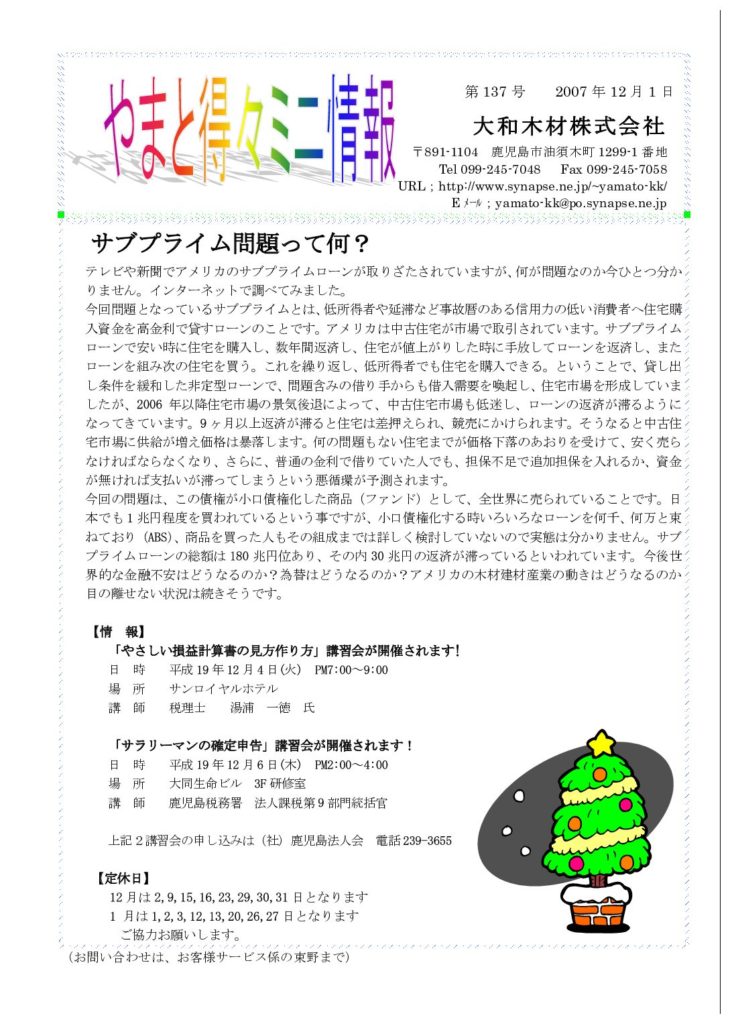 やまと得々ミニ情報
第137号　2007年12月1日
大和木材株式会社
〒891-1104　鹿児島市油須木町1299-1番地
Tel 099-245-7048　Fax 099-245-7058
URL；http://www.synapse.ne.jp/~yamato-kk/
Eﾒｰﾙ；yamato-kk@po.synapse.ne.jp
サブプライム問題って何？
テレビや新聞でアメリカのサブプライムローンが取りざたされていますが、何が問題なのか今ひとつ分か
りません。インターネットで調べてみました。
今回問題となっているサブプライムとは、低所得者や延滞など事故暦のある信用力の低い消費者へ住宅購
入資金を高金利で貸すローンのことです。アメリカは中古住宅が市場で取引されています。サブプライム
ローンで安い時に住宅を購入し、数年間返済し、住宅が値上がりした時に手放してローンを返済し、また
ローンを組み次の住宅を買う。これを繰り返し、低所得者でも住宅を購入できる。ということで、貸し出
し条件を緩和した非定型ローンで、問題含みの借り手からも借入需要を喚起し、住宅市場を形成していま
したが、2006 年以降住宅市場の景気後退によって、中古住宅市場も低迷し、ローンの返済が滞るように
なってきています。9ヶ月以上返済が滞ると住宅は差押えられ、競売にかけられます。そうなると中古住
宅市場に供給が増え価格は暴落します。何の問題もない住宅までが価格下落のあおりを受けて、安く売ら
なければならなくなり、さらに、普通の金利で借りていた人でも、担保不足で追加担保を入れるか、資金
が無ければ支払いが滞ってしまうという悪循環が予測されます。
今回の問題は、この債権が小口債権化した商品（ファンド）として、全世界に売られていることです。日
本でも1兆円程度を買われているという事ですが、小口債権化する時いろいろなローンを何千、何万と束
ねており（ABS）、商品を買った人もその組成までは詳しく検討していないので実態は分かりません。サブ
プライムローンの総額は180兆円位あり、その内30兆円の返済が滞っているといわれています。今後世
界的な金融不安はどうなるのか？為替はどうなるのか？アメリカの木材建材産業の動きはどうなるのか
目の離せない状況は続きそうです。
【情　報】
「やさしい損益計算書の見方作り方」講習会が開催されます！
日　時　　平成19年12月4日(火)　PM7:00～9:00
場　所　　サンロイヤルホテル
講　師　　税理士　　湯浦　一徳　氏
「サラリーマンの確定申告」講習会が開催されます！
日　時　　平成19年12月6日(木)　PM2:00～4:00
場　所　　大同生命ビル　3F研修室
講　師　　鹿児島税務署　法人課税第9部門統括官
上記２講習会の申し込みは（社）鹿児島法人会　電話239-3655
【定休日】
12月は2,9,15,16,23,29,30,31日となります
1 月は1,2,3,12,13,20,26,27日となります
ご協力お願いします。
（お問い合わせは、お客様サービス係の東野まで）